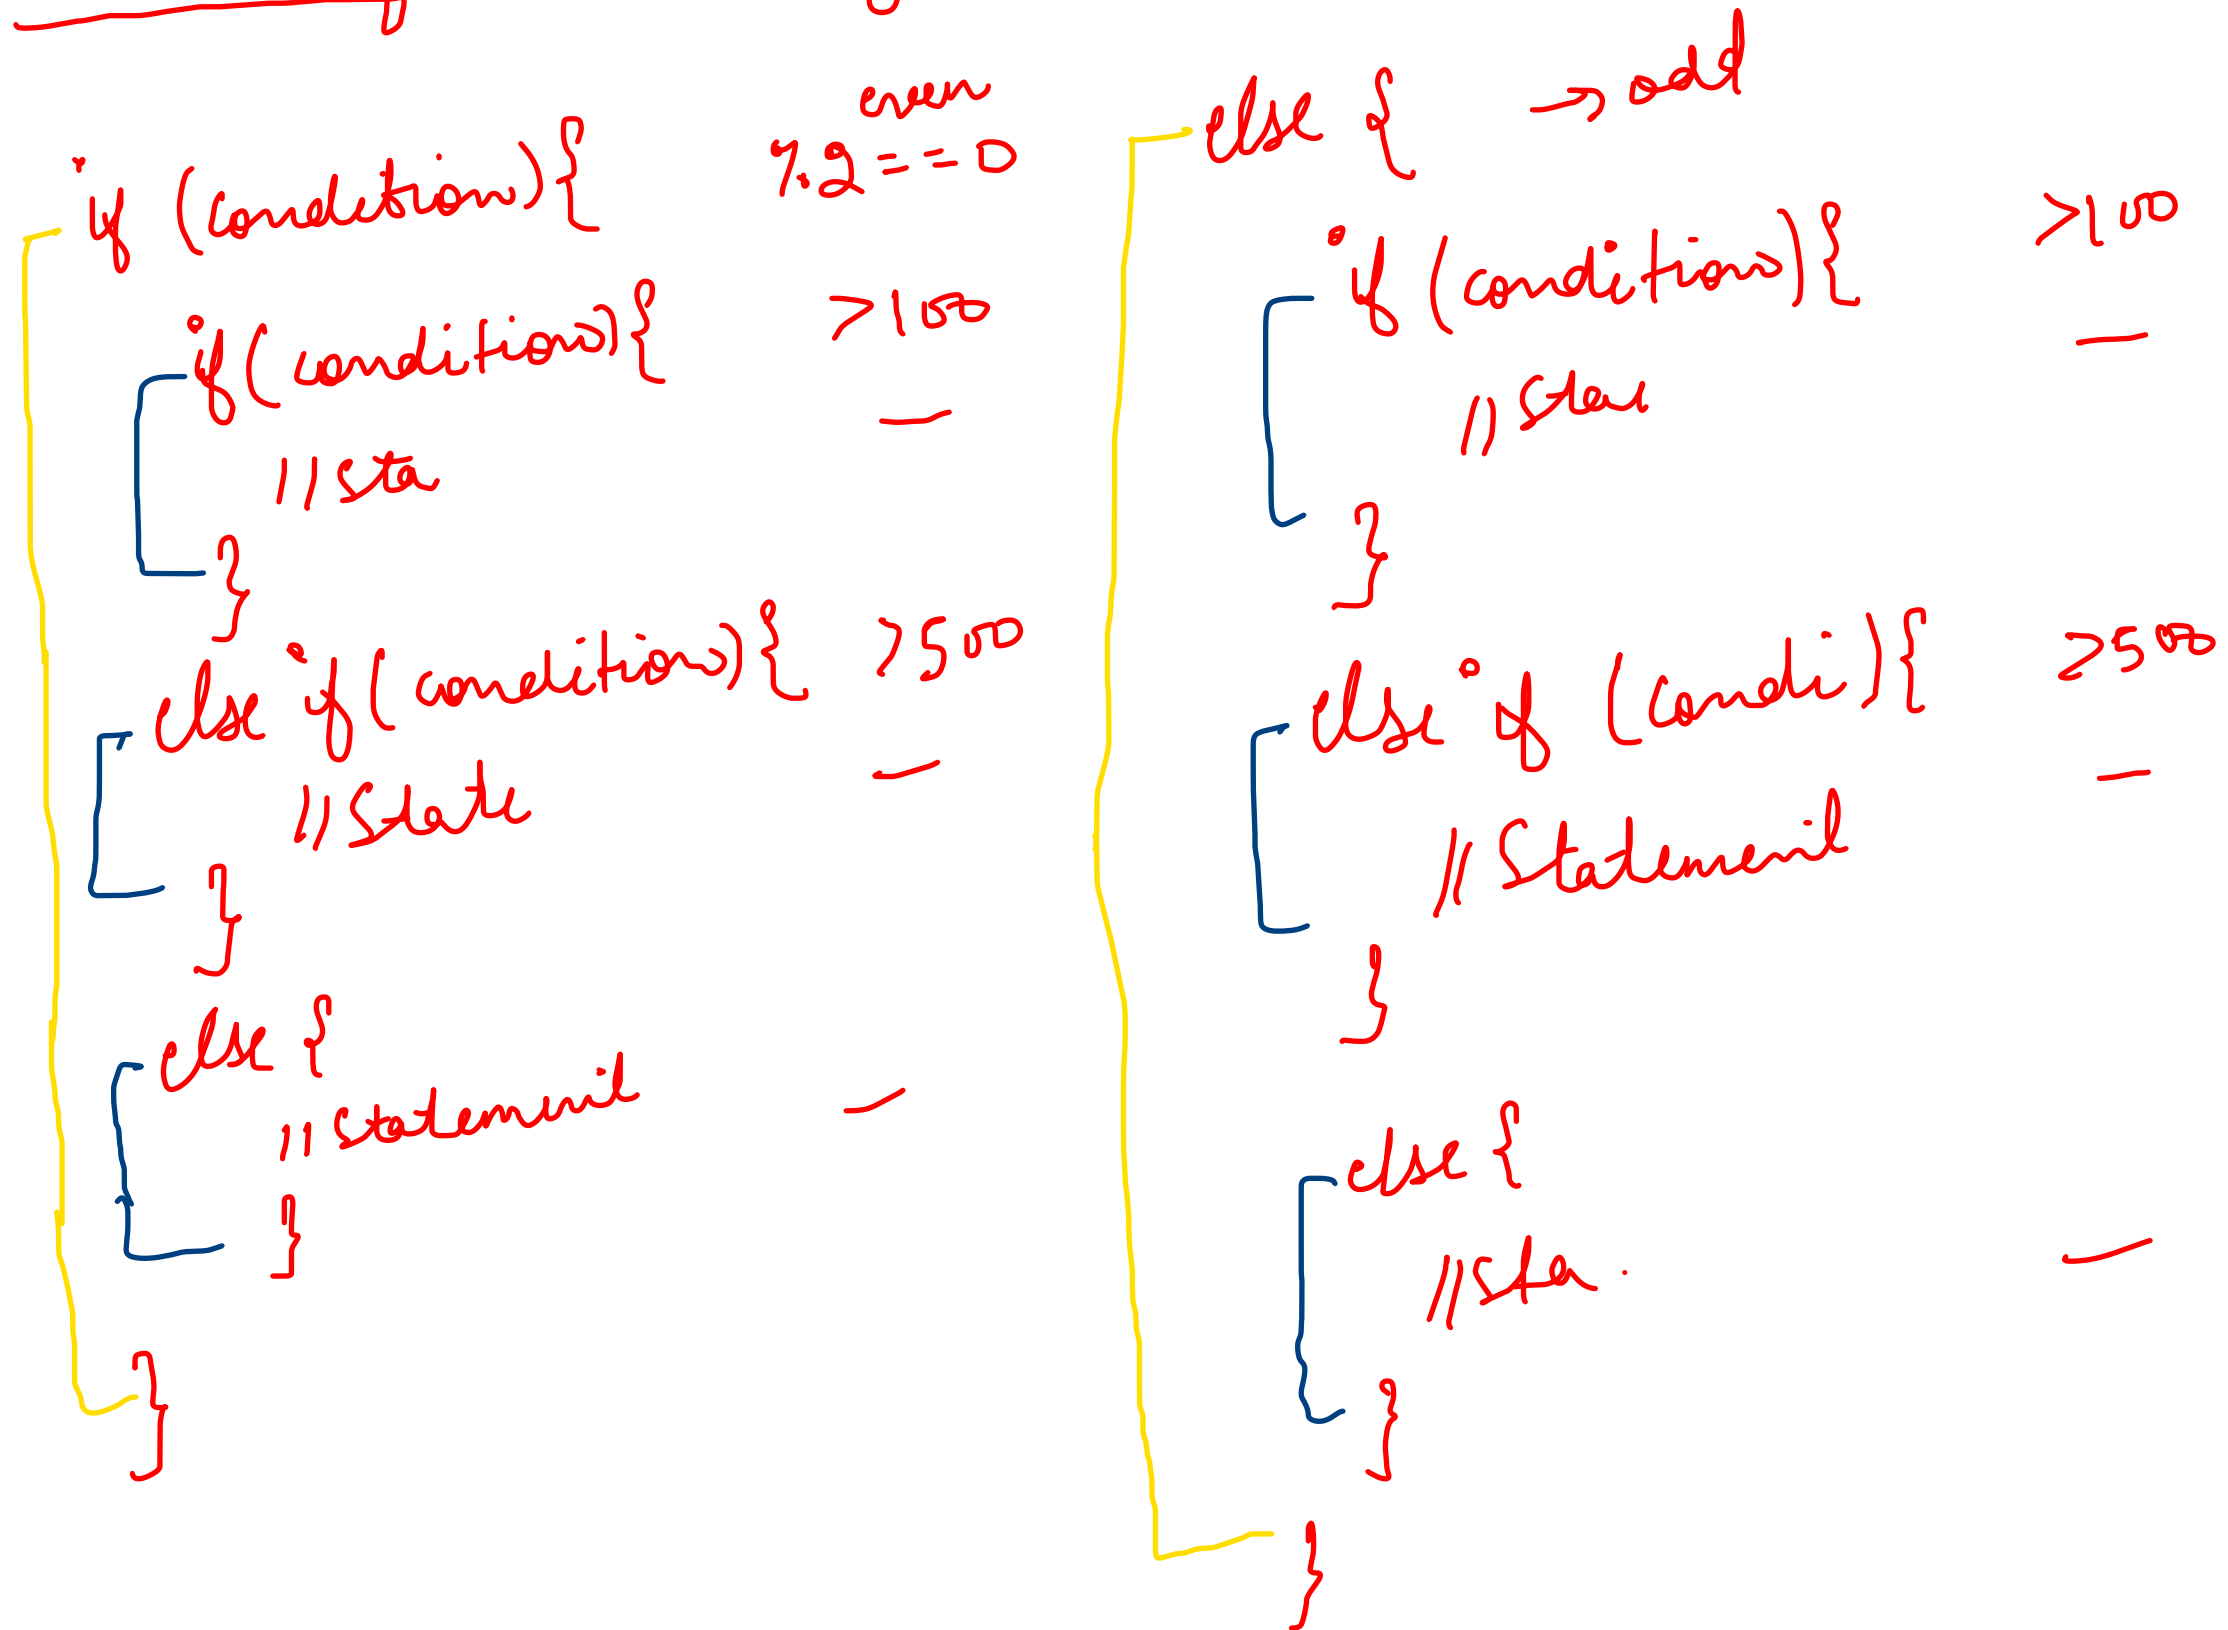 if (condition) {
even
%2 == 0
if (condition) {
>100
// sta
}
else if (condition) {
>500
// State
}
else {
// statement
}
}
else {
→ odd
if (condition) {
>100
// State
}
else if (condi) {
>500
// Statement
}
else {
// sta.
}
}